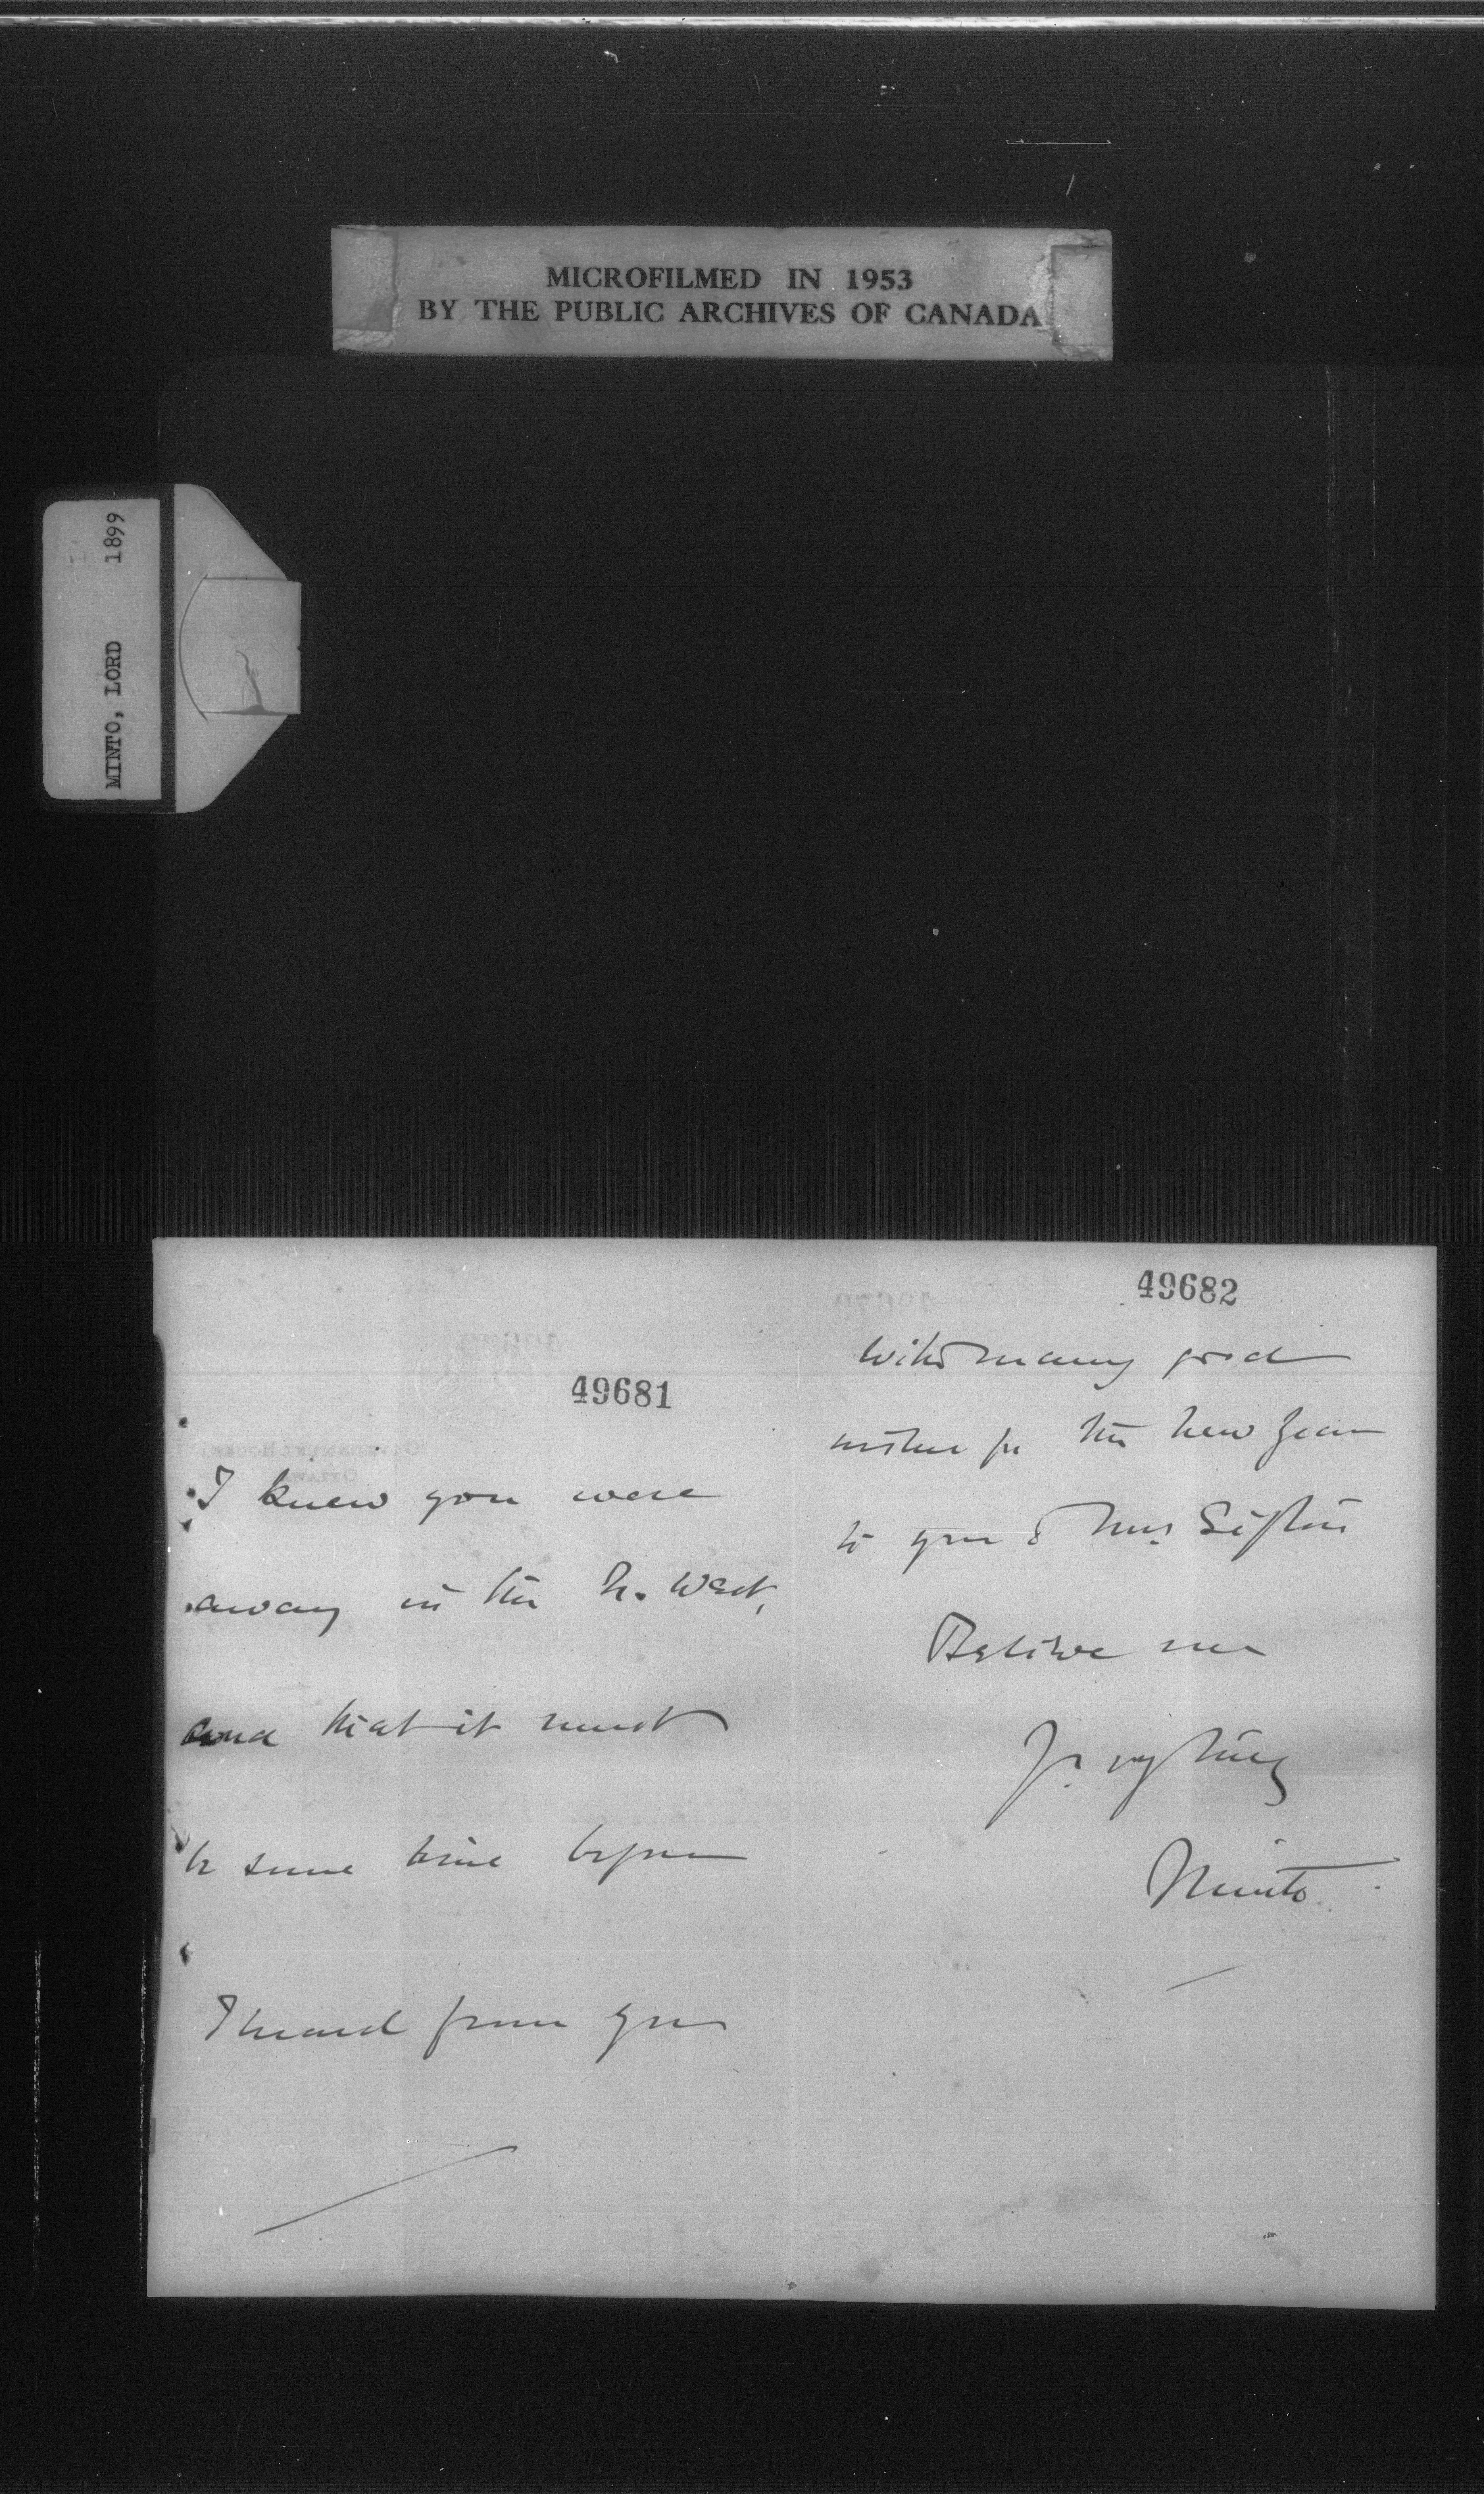 MICROFILMED IN 1953
BY THE PUBLIC ARCHIVES OF CANADA
MINTO, LORD 1899
49681
I knew you were
away in the N. West,
and that it must
be some time before
I heard from you
49682
With many good
wishes for the New Year
to you & Mrs. Sifton
Believe me
Yr. vy truly
Minto